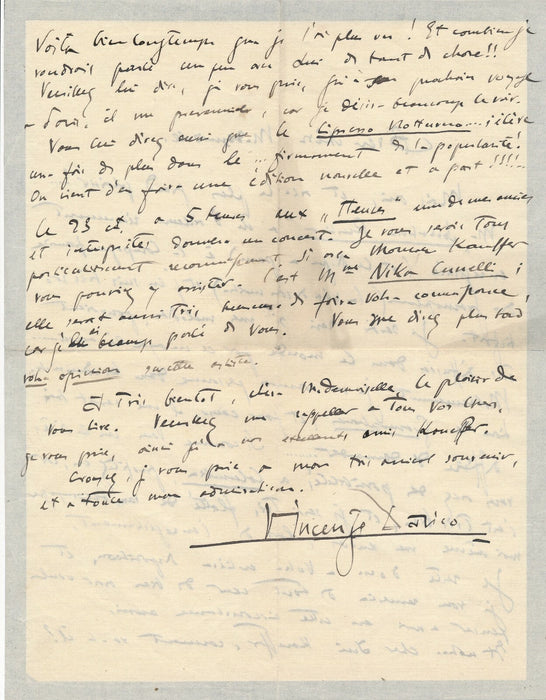 Voilà bien longtemps que je l'ai plus vu ! Et combien je
voudrais parler un peu avec lui de tant de chose !!
Veuillez lui dire, je vous prie, qu'à son prochain voyage
à Paris, il me prévienne, car je désire beaucoup le voir.
Vous lui direz aussi que le Cipresso Notturno... s'élève
une fois de plus dans le ... firmament de popularité !
On vient d'en faire une édition nouvelle et à part !!!!
Le 23 ct, à 5 heures aux "Heures" une de mes amies
et interprètes donnera un concert. Je vous serais tous
particulièrement reconnaissant, si avec Monsieur Kauffer
vous pouviez y assister. C'est Mme Nika Cunelli ;
elle serait aussi très heureuse de faire votre connaissance,
car je lui ai beaucoup parlé de vous. Vous me direz plus tard
votre opinion sur cette artiste.
Et très bientôt, chère Mademoiselle, le plaisir de
vous lire. Veuillez me rappeler à tous vos chers,
je vous prie, ainsi qu'à vos excellents amis Kauffer.
Croyez, je vous prie, à mon très amical souvenir,
et à toute mon admiration.
Vincenzo Davico